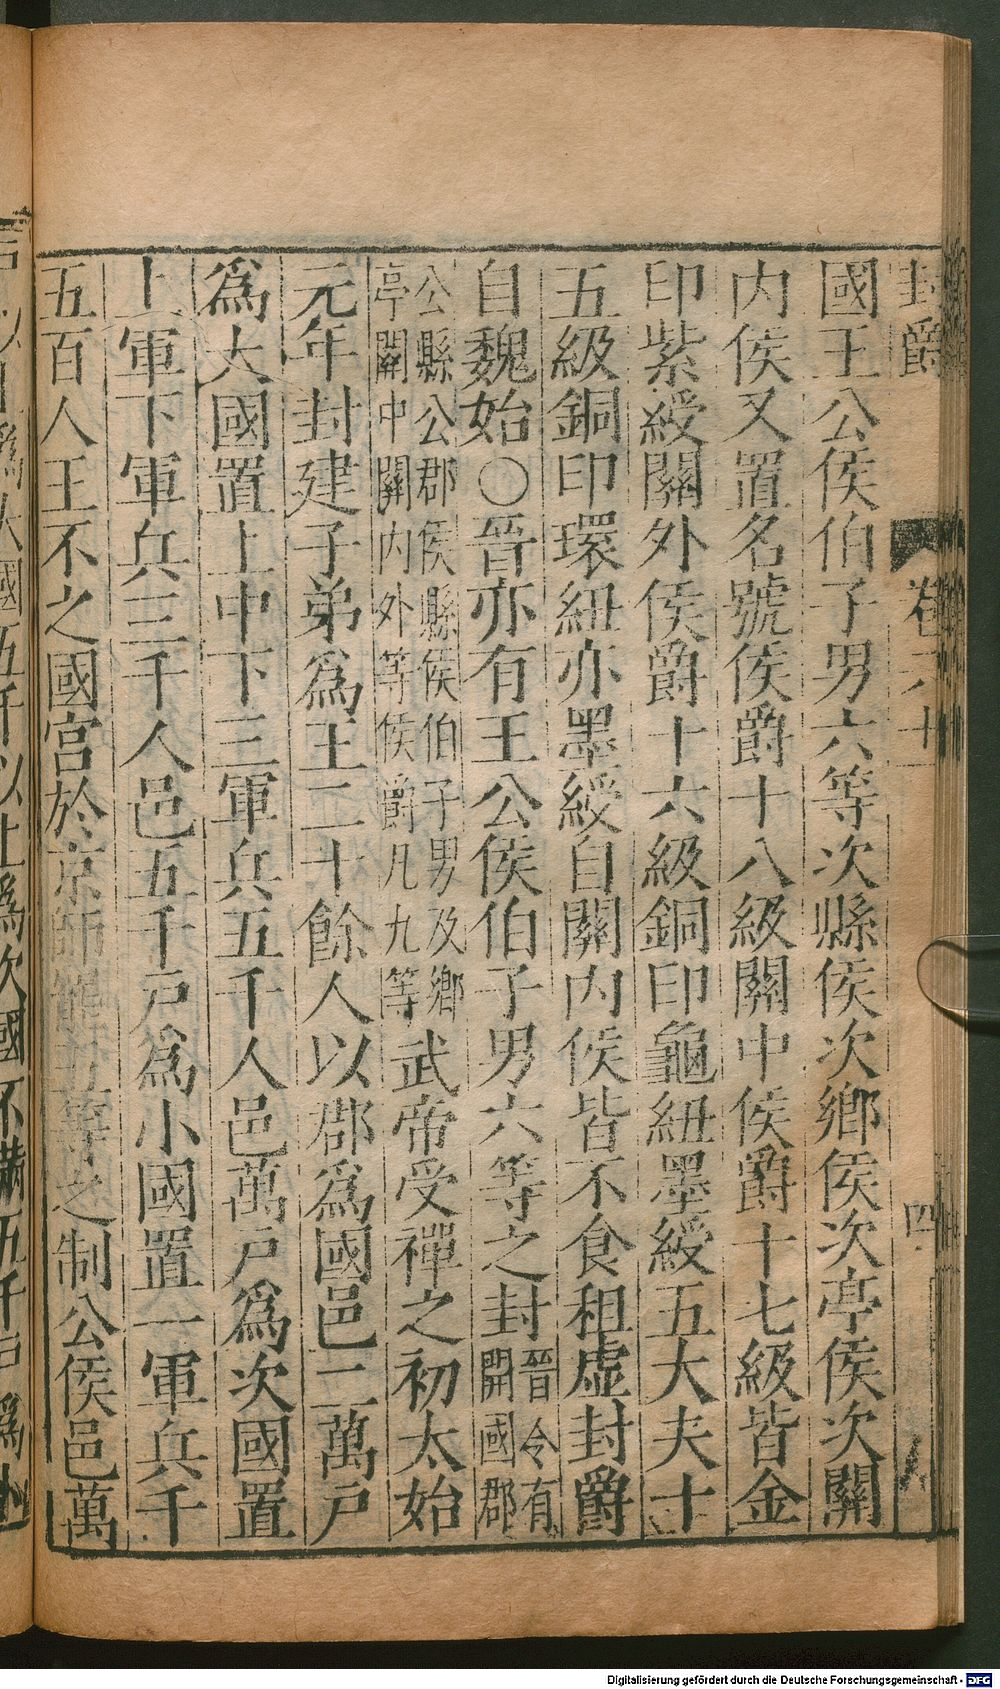 封爵 卷六十 四
國王公侯伯子男六等次縣侯次鄉侯次亭侯次關
内侯又置名號侯爵十八級關中侯爵十七級皆金
印紫綬關外侯爵十六級銅印龜紐墨綬五大夫十
五級銅印環紐亦墨綬自關内侯皆不食租虛封爵
自魏始〇晉亦有王公侯伯子男六等之封晉令有開國郡
公縣公郡侯縣侯伯子男及鄉亭關中關内外等侯爵凡九等武帝受禪之初太始
元年封建子弟爲王二十餘人以郡爲國邑二萬戸
爲大國置上中下三軍兵五千人邑萬戸爲次國置
上軍下軍兵三千人邑五千戸爲小國置一軍兵千
五百人王不之國官於京師罷五等之制公侯邑萬
戸以上爲大國五千以上爲次國不滿五千戸爲小
Digitalisierung gefördert durch die Deutsche Forschungsgemeinschaft - DFG